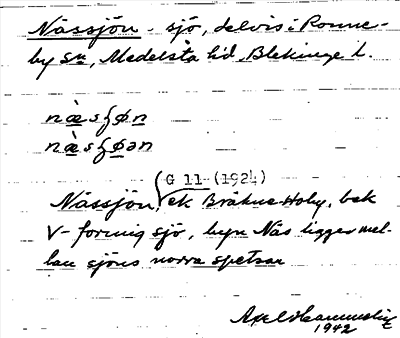 Nässjön - sjö, delvis i Ronne-
by sn, Medelsta hd, Blekinge l.
næsʃøn
næ̀sʃøən
G 11 (1924)
Nässjön, ek Bräkne-Hoby, bek
V-formig sjö, byn Näs ligger mel-
lan sjöns norra spetsar
1942